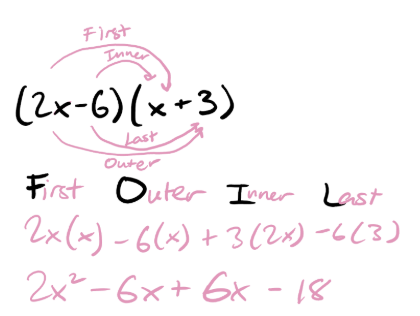 First
Inner
(2x-6)(x+3)
Last
Outer
First Outer Inner Last
2x(x) - 6(x) + 3(2x) - 6(3)
2x² - 6x + 6x - 18